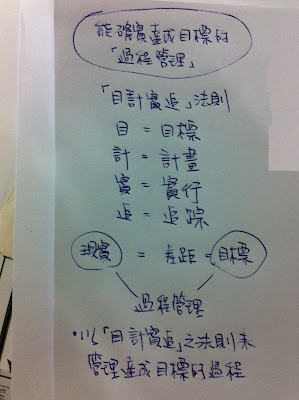 能確實達成目標的
「過程管理」
「目計實追」法則
目 = 目標
計 = 計畫
實 = 實行
追 = 追踪
現實 = 差距 = 目標
過程管理
以「目計實追」之法則來
管理達成目標的過程